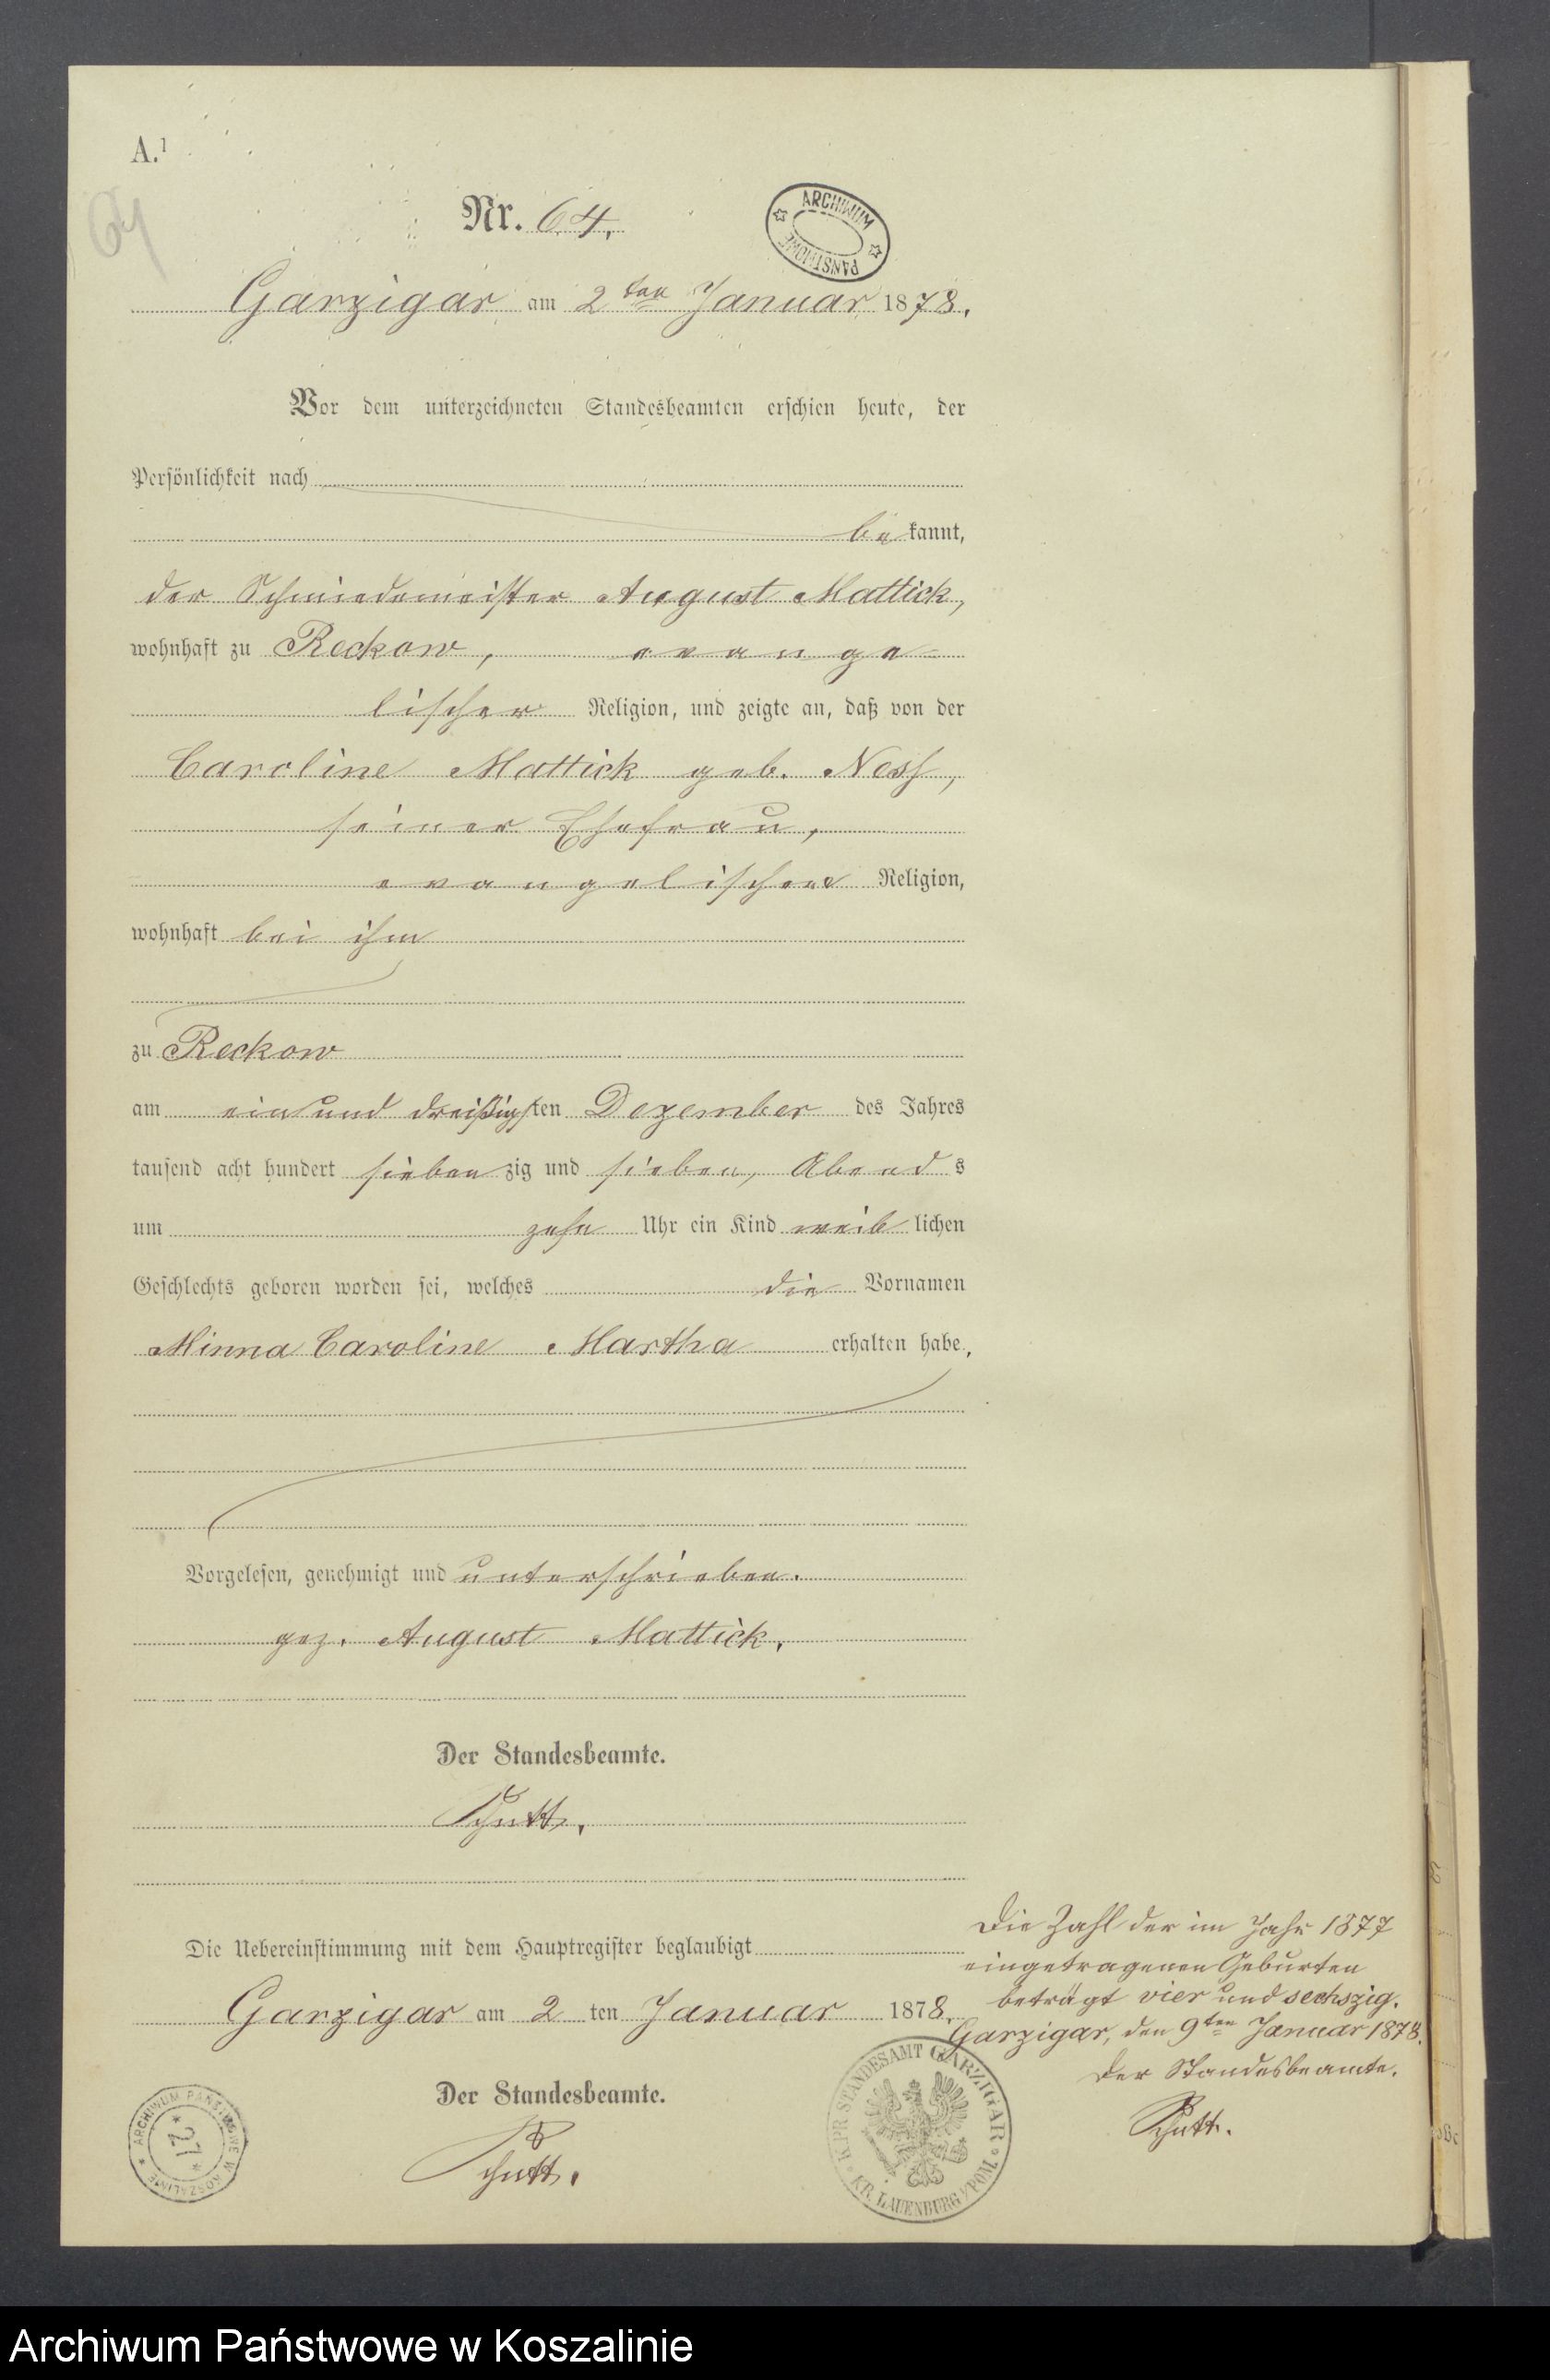 A.¹
64
Nr. 64.
ARCHIWUM PAŃSTWOWE
Garzigar am 2ten Januar 1878.
Vor dem unterzeichneten Standesbeamten erschien heute, der
Persönlichkeit nach
bekannt,
der Schmiedemeister August Mattick,
wohnhaft zu Reckow, evange-
lischer Religion, und zeigte an, daß von der
Caroline Mattick geb. Ness,
seiner Ehefrau,
evangelischer Religion,
wohnhaft bei ihm
zu Reckow
am ein und dreißigsten Dezember des Jahres
tausend acht hundert siebenzig und sieben, Abends
um zehn Uhr ein Kind weiblichen
Geschlechts geboren worden sei, welches die Vornamen
Minna Caroline Martha erhalten habe.
Vorgelesen, genehmigt und unterschrieben.
gez. August Mattick.
Der Standesbeamte.
Schutt.
Die Uebereinstimmung mit dem Hauptregister beglaubigt
Garzigar am 2ten Januar 1878.
Der Standesbeamte.
Schutt.
Die Zahl der im Jahr 1877
eingetragenen Geburten
beträgt vier und sechszig.
Garzigar, den 9ten Januar 1878.
Der Standesbeamte.
Schutt.
K. PR. STANDESAMT GARZIGAR
KR. LAUENBURG i/POM.
ARCHIWUM PAŃSTWOWE W KOSZALINIE
*27*
Archiwum Państwowe w Koszalinie